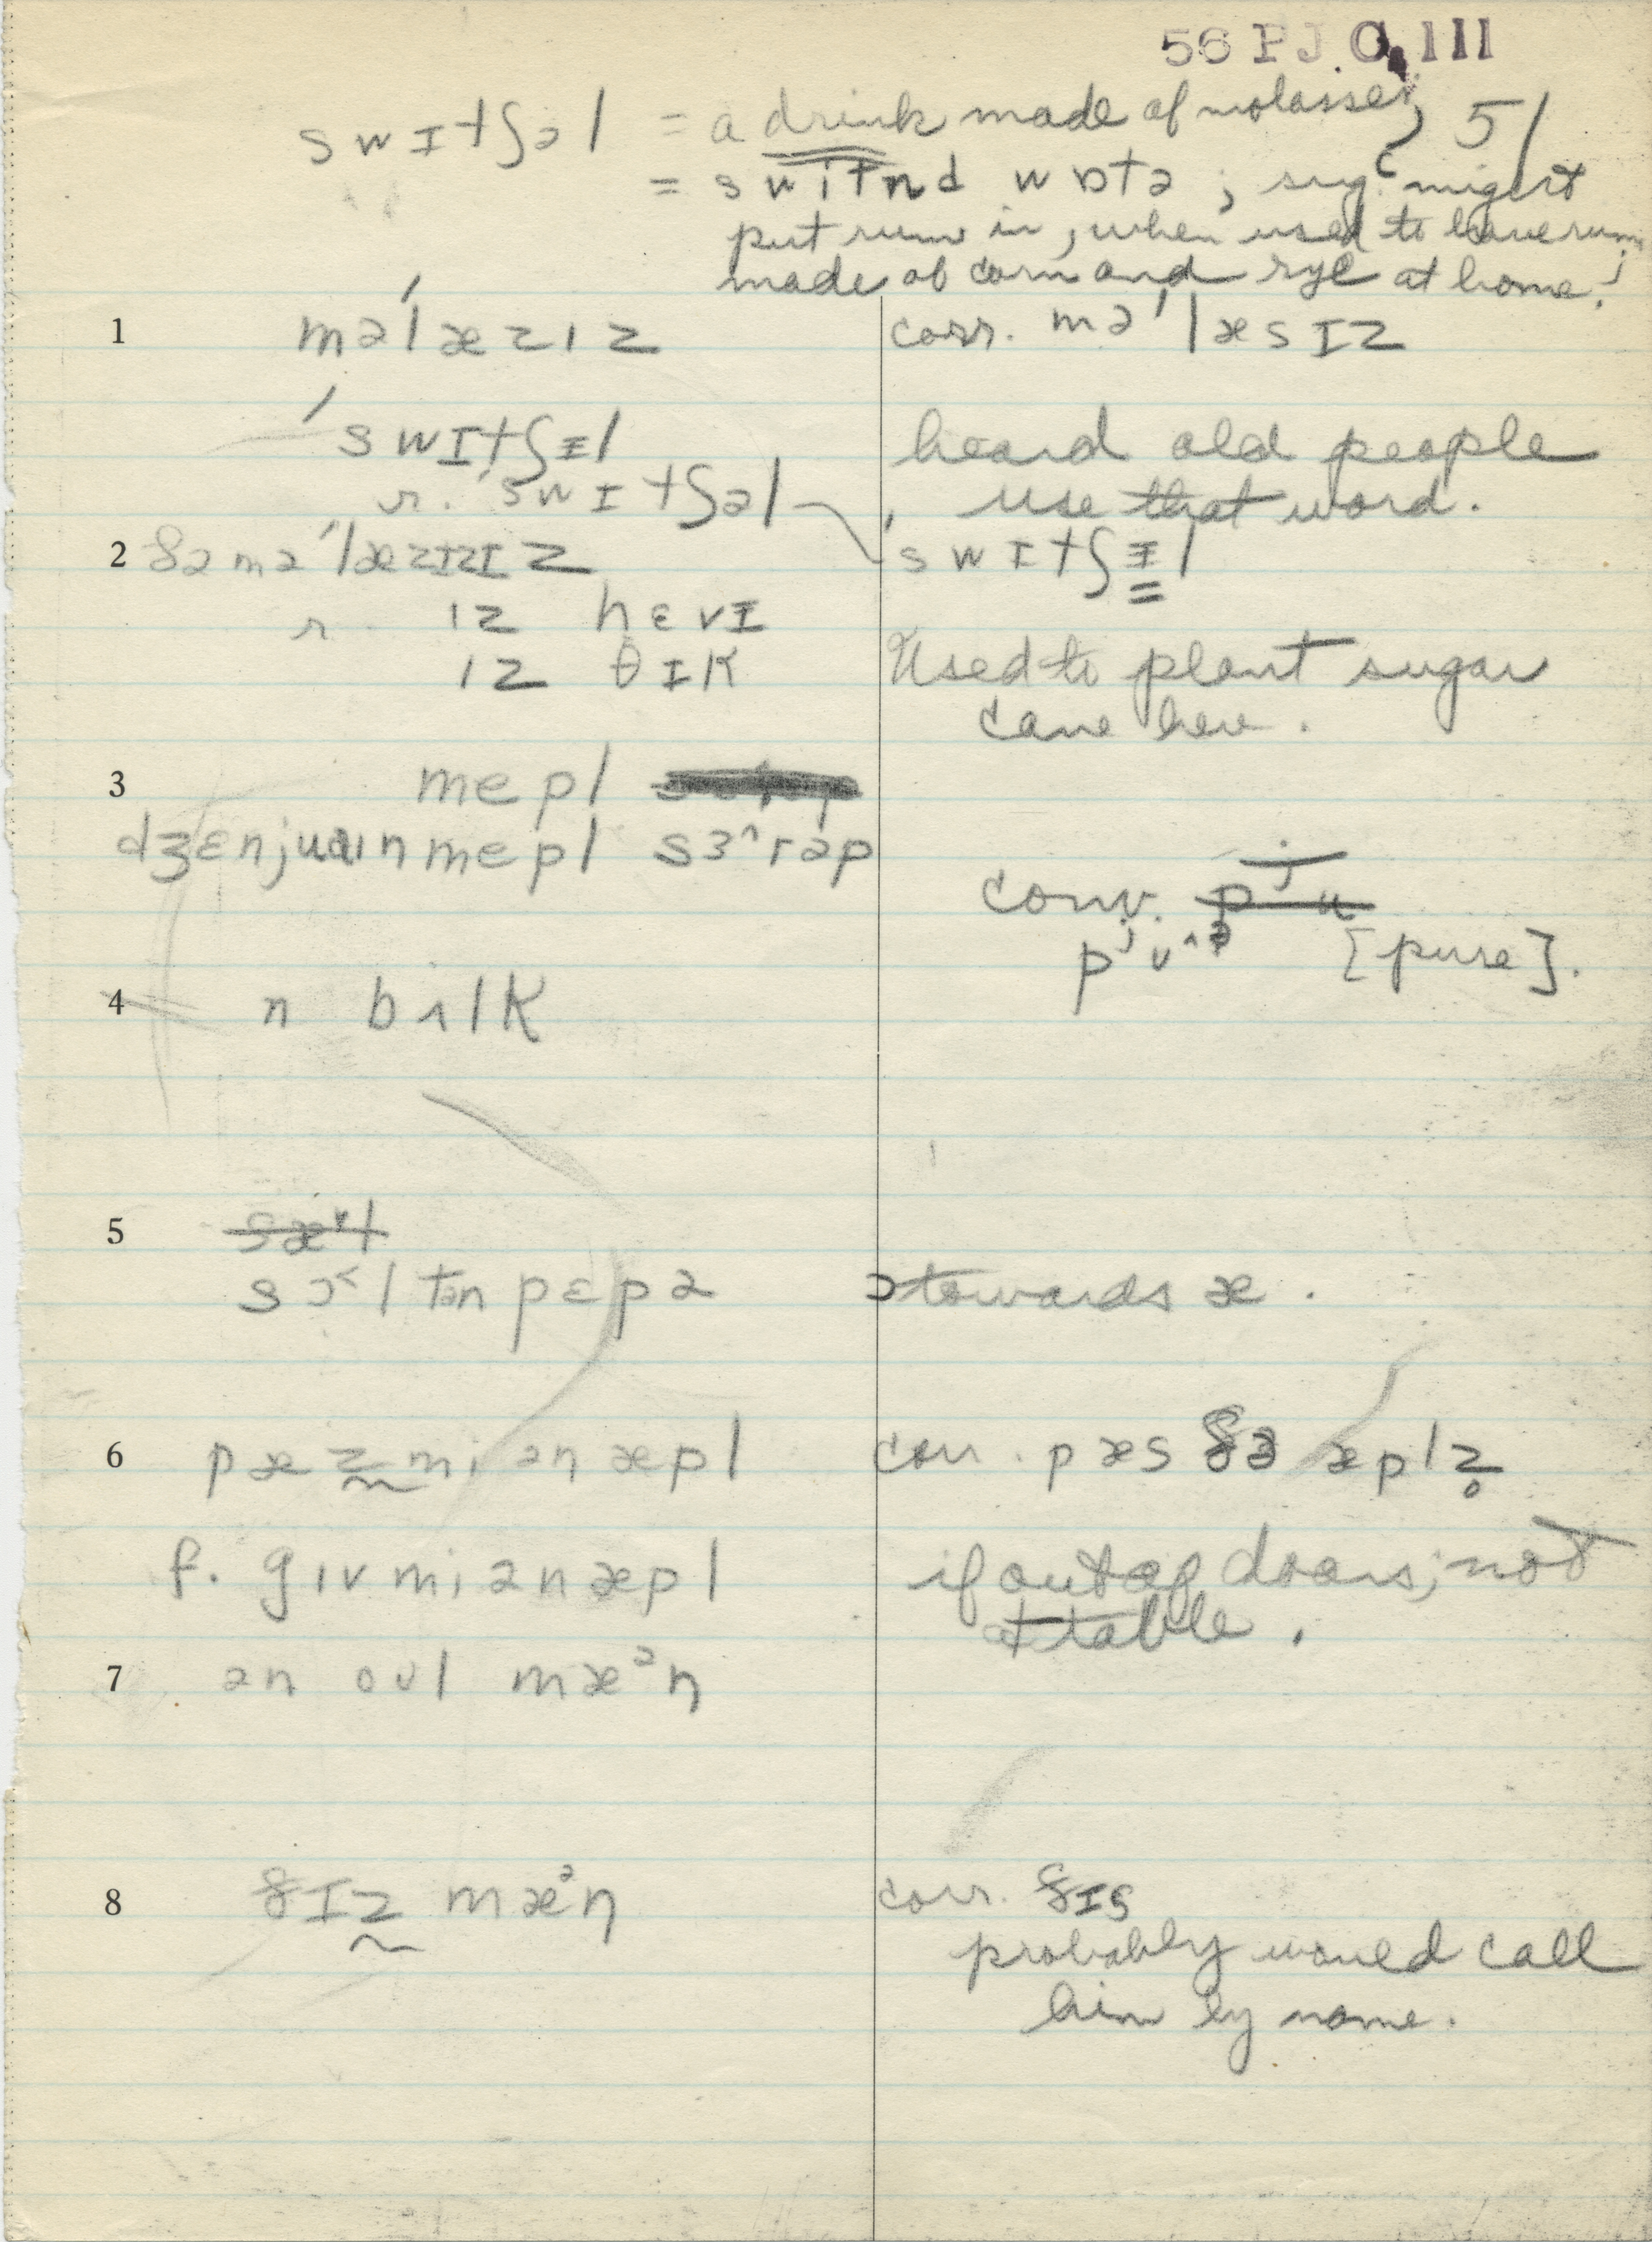 56 P J. C. III
swɪtʃəl = a drink made of molasses 51
= switnd wɒtə ; sug. might
put rum in, when used to have rum
made of corn and rye at home.!
1 mə'læzɪz corr. mə'læsɪz
'swɪtʃɪl heard old people
r. 'swɪtʃəl use that word.
2 ðə mə'læzɪz 'swɪtʃɪl
r ɪz hɛvɪ
ɪz θɪk Used to plant sugar
cane here.
3 mepl
dʒɛnjuaɪn mepl sɜ˄rəp
conv. pʲu
pʲʊ˄ə [pure].
4 n bʌlk
5 sæ˅l
sɔ˂l tən pɛpə ɔ towards æ.
6 pæz̰ mi ən æpl corr. pæs ðə æplz̥
f. gɪv mi ən æpl if out of doors; not
at table.
7 ən oʊl mæᵊn
8 ðɪz̰ mæᵊn corr. ðɪs
probably would call
him by name.